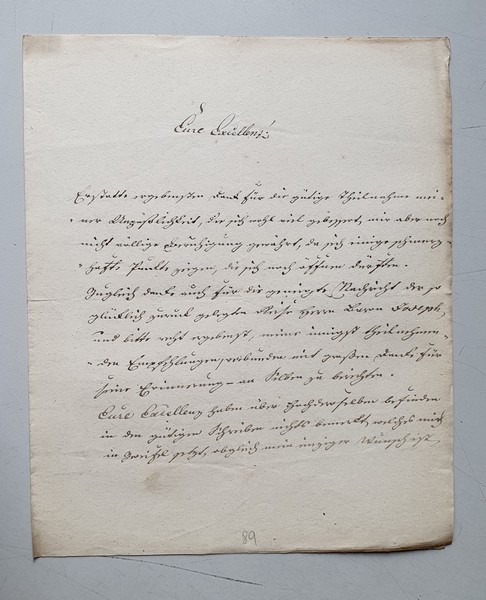 Eure Excellenz!
Erstatte ergebensten Dank für die gütige Theilnahme mei-
ner Unpäßlichkeit, die sich wohl viel gebessert, mir aber noch
nicht völlige Beruhigung gewährt, da sich einige schmerz-
hafte Punkte zeigen, die sich noch öffnen dürften.
Zugleich danke auch für die geneigte Nachricht der so
glücklich zurück gelegten Reise Herrn Baron Joseph,
und bitte recht ergebenst, meine innigst theilnehmen-
den Empfehlungen, verbunden mit großem Danke für
seine Erinnerung – an Selben zu berichten.
Eure Excellenz haben über Hochderselben Befinden
in dem gütigen Schreiben nichts bemerkt, welches mich
in Zweifel setzt, obgleich mein einziger Wunsch ist,
89